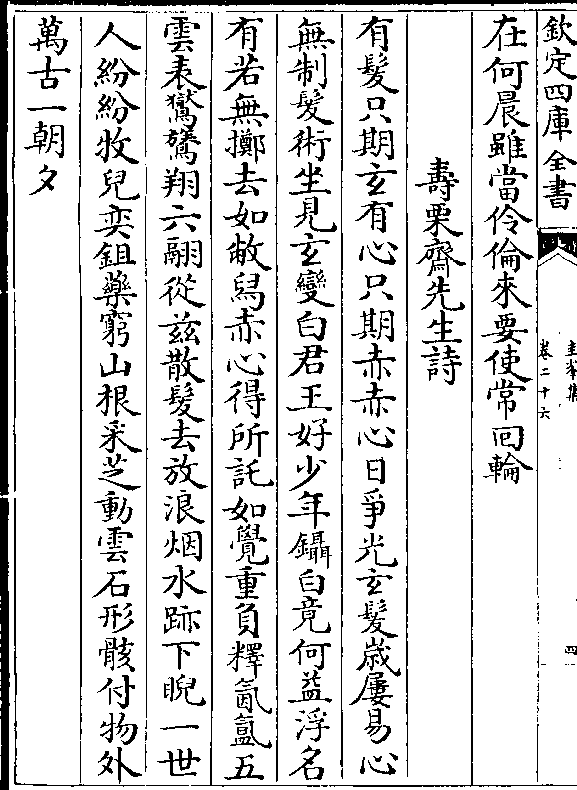 欽定四庫全書
圭峯集
卷二十六
四
在何晨雖當伶倫來要使常回輪
壽栗齋先生詩
有髮只期玄有心只期赤赤心日爭光玄髮嵗屢易心
無制髮術坐見玄變白君王好少年鑷白竟何益浮名
有若無擲去如敝舄赤心得所託如覺重負釋氤氲五
雲表鸑鷟翔六翮從兹散髮去放浪烟水跡下睨一世
人紛紛牧兒奕鉏藥窮山根采芝動雲石形骸付物外
萬古一朝夕